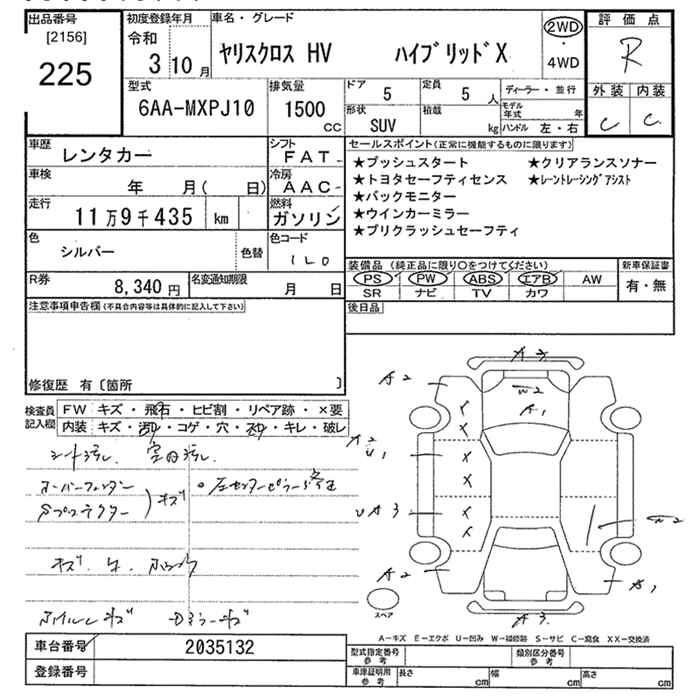 出品番号
[2156]
225
初度登録年月
令和
3 10 月
車名・グレード
ヤリスクロス HV ハイブリッドX
2WD
・
4WD
評価点
R
外装 内装
C C
型式
6AA-MXPJ10
排気量
1500
CC
ドア
5
定員
5 人
形状
SUV
積載
kg
ディーラー・並行
モデル年式 年
ハンドル 左・右
車歴
レンタカー
シフト
FAT
車検
年 月( 日)
冷房
AAC
走行
11万9千435 km
燃料
ガソリン
色
シルバー
色替
色コード
1L0
R券
8,340 円
名変通知期限
月 日
セールスポイント(正常に機能するものに限ります)
★プッシュスタート ★クリアランスソナー
★トヨタセーフティセンス ★レーントレーシングアシスト
★バックモニター
★ウインカーミラー
★プリクラッシュセーフティ
装備品(純正品に限り○をつけてください)
PS PW ABS エアB AW
SR ナビ TV カワ
新車保証書
有・無
後日品
注意事項申告欄(不具合内容等は具体的に記入して下さい)
修復歴 有〔箇所 〕
検査員記入欄
FW キズ・飛石・ヒビ割・リペア跡・×要
内装 キズ・汚れ・コゲ・穴・スレ・キレ・破レ
シート汚れ. 室内汚れ.
オーバーフェンダー
キズ
A3
A2
W2
A1
A2
U1
UA3
W2
A2
A1
A3
スペア
A−キズ E−エクボ U−凹み W−補修跡 S−サビ C−腐食 XX−交換済
車台番号 2035132
登録番号
型式指定番号 参考
類別区分番号 参考
車庫証明用 参考
長さ cm
幅 cm
高さ cm